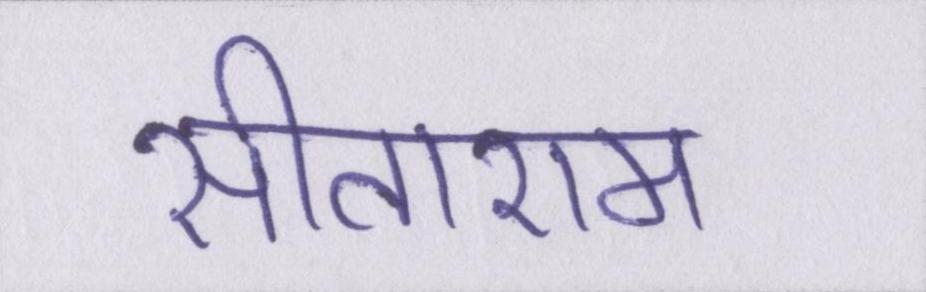 सीताराम